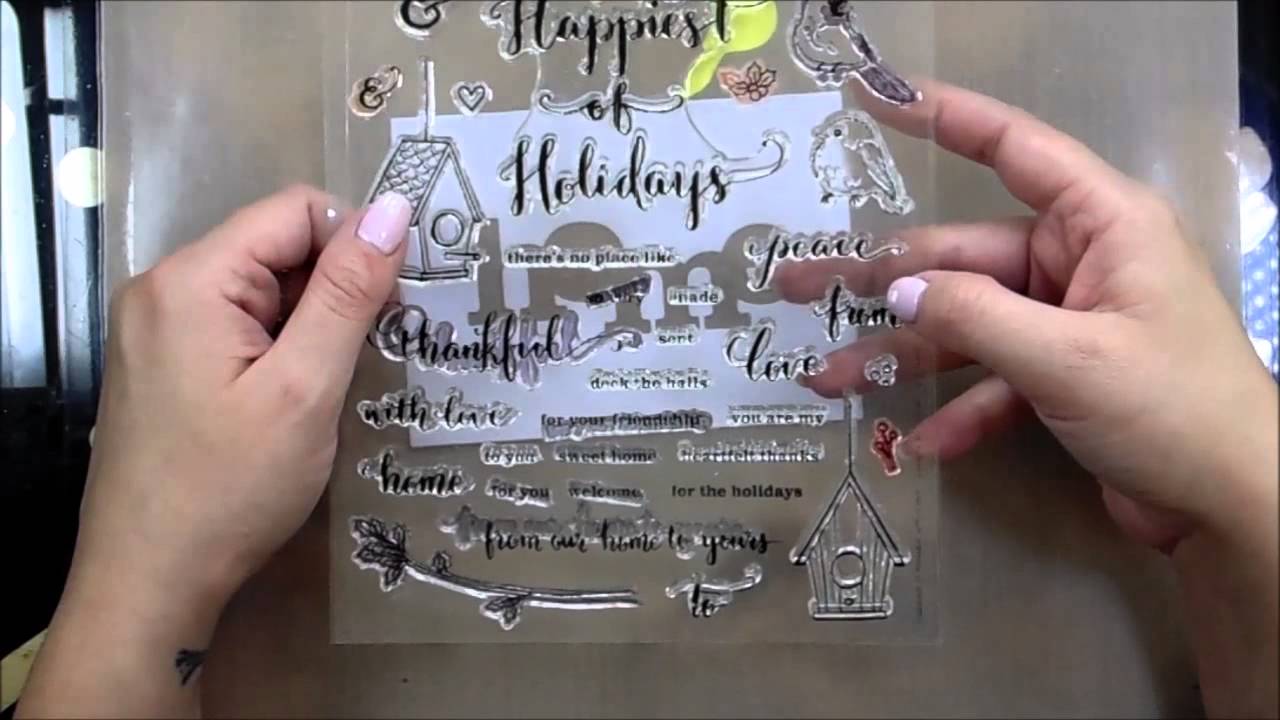 &
Happiest
&
of
Holidays
there's no place like
peace
made
from
thankful
sent
love
deck the halls
with love
for your friendship
you are my
to you
sweet home
heartfelt thanks
home
for you
welcome
for the holidays
from our home to yours
to